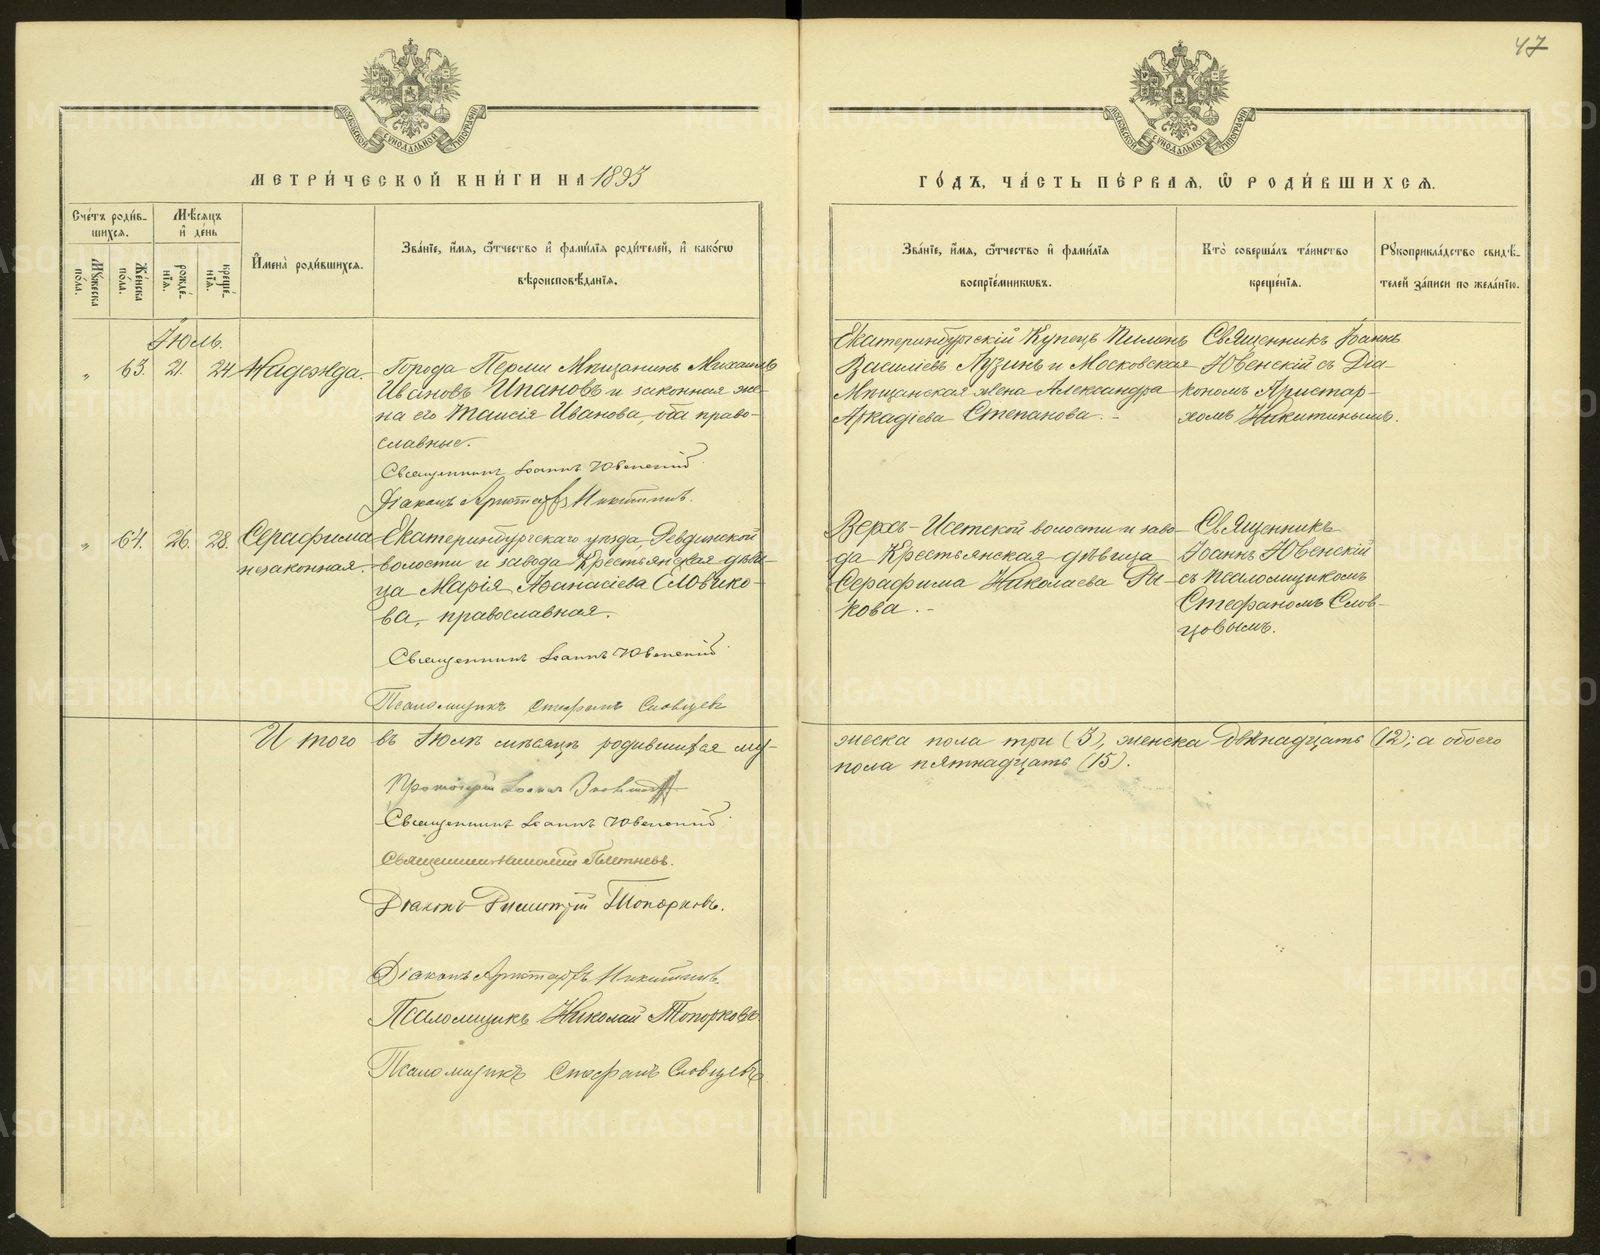 47
МОСКОВСКОЙ СѴНОДАЛЬНОЙ ТИПОГРАФІИ
МОСКОВСКОЙ СѴНОДАЛЬНОЙ ТИПОГРАФІИ
МЕТРИ́ЧЕСКОЙ КНИ́ГИ НА 1893
ГО́ДЪ, ЧА́СТЬ ПЕ́РВАЯ, Ѡ РОДИ́ВШИХСѦ.
Сче́тъ роди́в-
шихсѧ.
Мѣ́сѧцъ
и҆ де́нь
И҆мена̀ роди́вшихсѧ.
Зва́нїе, и҆́мѧ, ѻ҆́тчество и҆ фами́лїѧ роди́телей, и҆ како́гѡ
вѣроисповѣ́данїѧ.
Мꙋ́жеска
по́ла.
Же́нска
по́ла.
рожде́-
нїѧ.
креще́-
нїѧ.
Зва́нїе, и҆́мѧ, ѻ҆́тчество и҆ фами́лїѧ
воспрїе́мникѡвъ.
Кто̀ соверша́лъ та́инство
креще́нїѧ.
Рꙋкоприкла́дство свидѣ́-
телей за́писи по жела́нїю.
Іюль.
" 63. 21. 24 Надежда.
Города Перми Мѣщанинъ Михаилъ
Ивановъ Ипановъ и законная же-
на его Таисія Иванова, оба право-
славные.
Священникъ Іоаннъ Ювенскій
Діаконъ Аристархъ Никитинъ.
Екатеринбургскій Купецъ Пименъ
Василіевъ Лузинъ и Московская
Мѣщанская жена Александра
Аркадіева Степанова. -
Священникъ Іоаннъ
Ювенскій съ Діа-
кономъ Аристар-
хомъ Никитинымъ.
" 64. 26. 28. Серафима
незаконная.
Екатеринбургскаго уѣзда, Ревдинской
волости и завода Крестьянская дѣви-
ца Марія Аѳанасіева Словико-
ва, православная.
Священникъ Іоаннъ Ювенскій
Псаломщикъ Стефанъ Словцевъ
Верхъ-Исетской волости и заво-
да Крестьянская дѣвица
Серафима Николаева Ры-
кова. -
Священникъ
Іоаннъ Ювенскій
съ псаломщикомъ
Стефаномъ Слов-
цовымъ.
Итого въ Іюлѣ мѣсяцѣ родившихся му-
жеска пола три (3), женска двѣнадцать (12); а обоего
пола пятнадцать (15).
Протоіерей Іоаннъ
Священникъ Іоаннъ Ювенскій
Священникъ Николай Плетневъ.
Діаконъ Димитрій Топорковъ.
Діаконъ Аристархъ Никитинъ.
Псаломщикъ Николай Топорковъ.
Псаломщикъ Стефанъ Словцевъ
METRIKI.GASO-URAL.RU